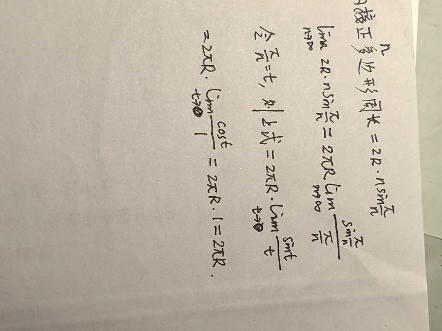 内接正n多边形周长=2R·n sin π/n
lim n→∞ 2R·n sin π/n = 2πR lim n→∞ (sin π/n)/(π/n)
令 π/n = t, 则上式 = 2πR·lim t→0 sint/t
= 2πR·lim t→0 cost/1 = 2πR·1 = 2πR.